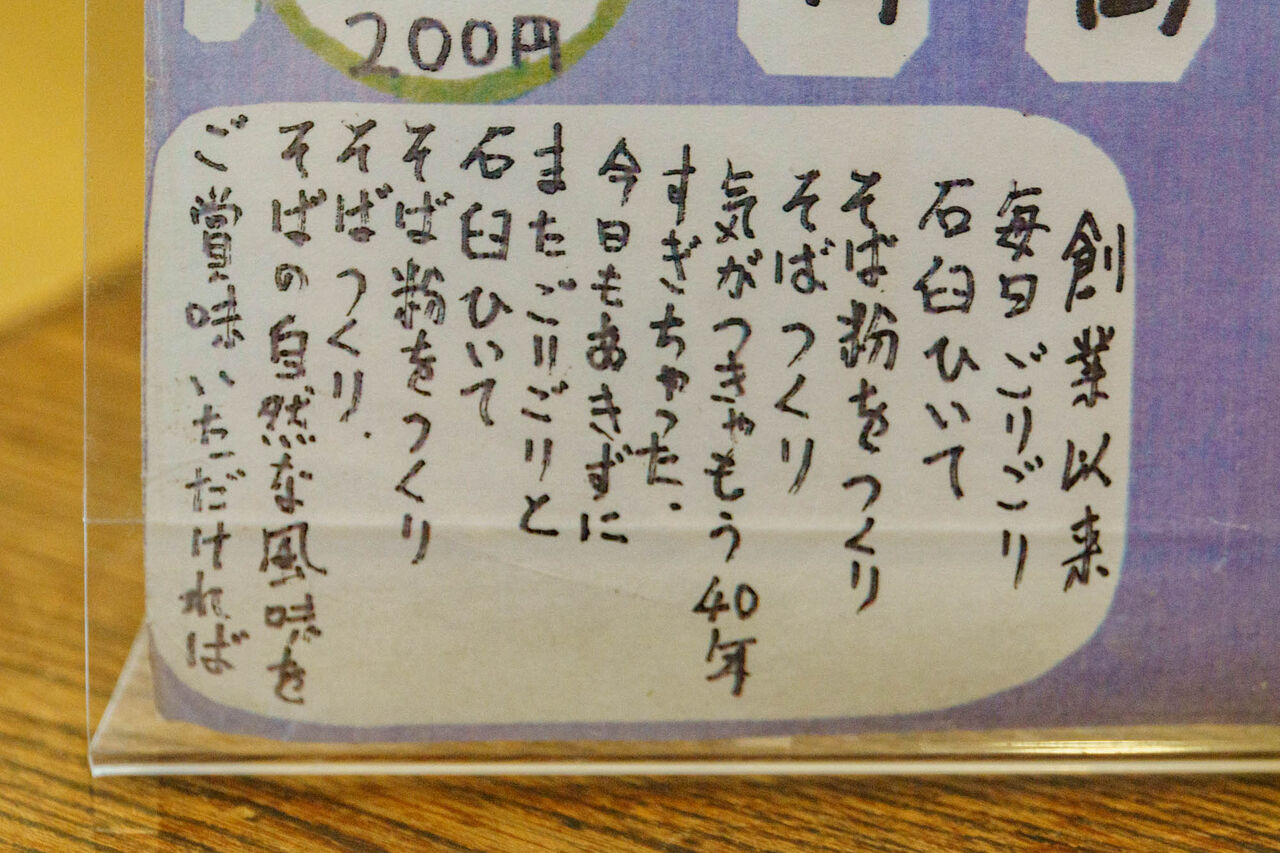 200円
創業以来
毎日ごりごり
石臼ひいて
そば粉をつくり
そばつくり
気がつきゃもう40年
すぎちゃった.
今日もあきずに
またごりごりと
石臼ひいて
そば粉をつくり
そばつくり.
そばの自然な風味を
ご賞味いただければ